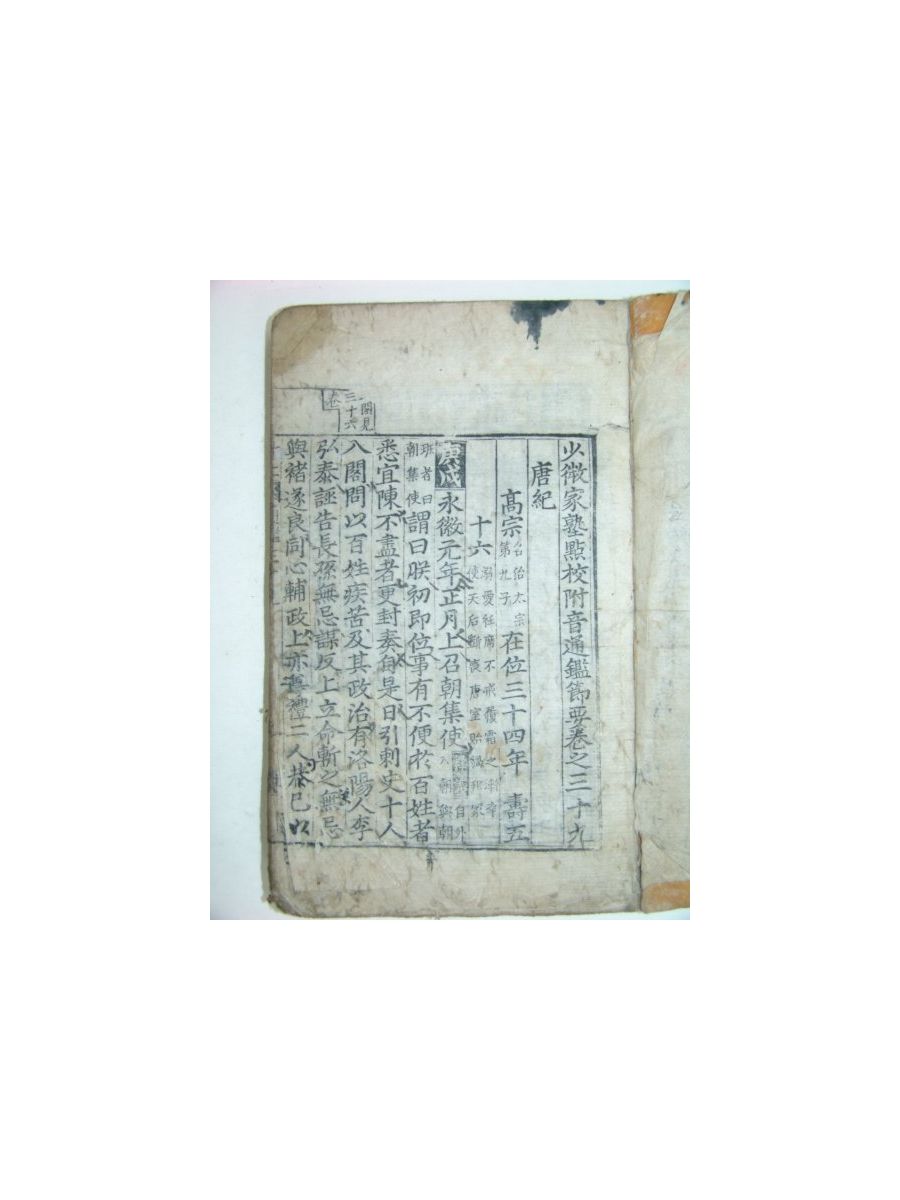 少微家塾點校附音通鑑節要卷之三十九
唐紀
高宗 名治太宗第九子 在位三十四年 壽五
十六 溺愛衽席不戒履霜之漸 使天后斲喪唐室貽禍邦家
庚戌 永徽元年正月上召朝集使 自外入朝與朝
班者曰朝集使 謂曰朕初即位事有不便於百姓者
悉宜陳不盡者更封奏自是日引刺史十人
入閤問以百姓疾苦及其政治有洛陽人李
弘泰誣告長孫無忌謀反上立命斬之無忌
與褚遂良同心輔政上亦尊禮二人恭己以
閤見
三十六
卷